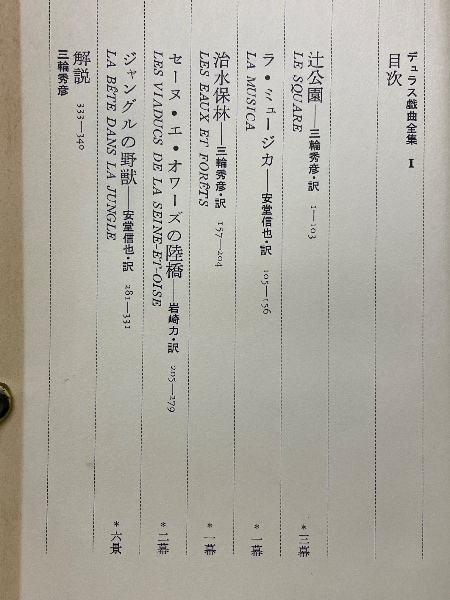 デュラス戯曲全集 I
目次
辻公園——三輪秀彦・訳 1—103 *三幕
LE SQUARE
ラ・ミュージカ——安堂信也・訳 105—156 *一幕
LA MUSICA
治水保林——三輪秀彦・訳 157—204 *一幕
LES EAUX ET FORÊTS
セーヌ・エ・オワーズの陸橋——岩崎力・訳 205—279 *二幕
LES VIADUCS DE LA SEINE-ET-OISE
ジャングルの野獣——安堂信也・訳 281—331 *六景
LA BÊTE DANS LA JUNGLE
解説 333—340
三輪秀彦